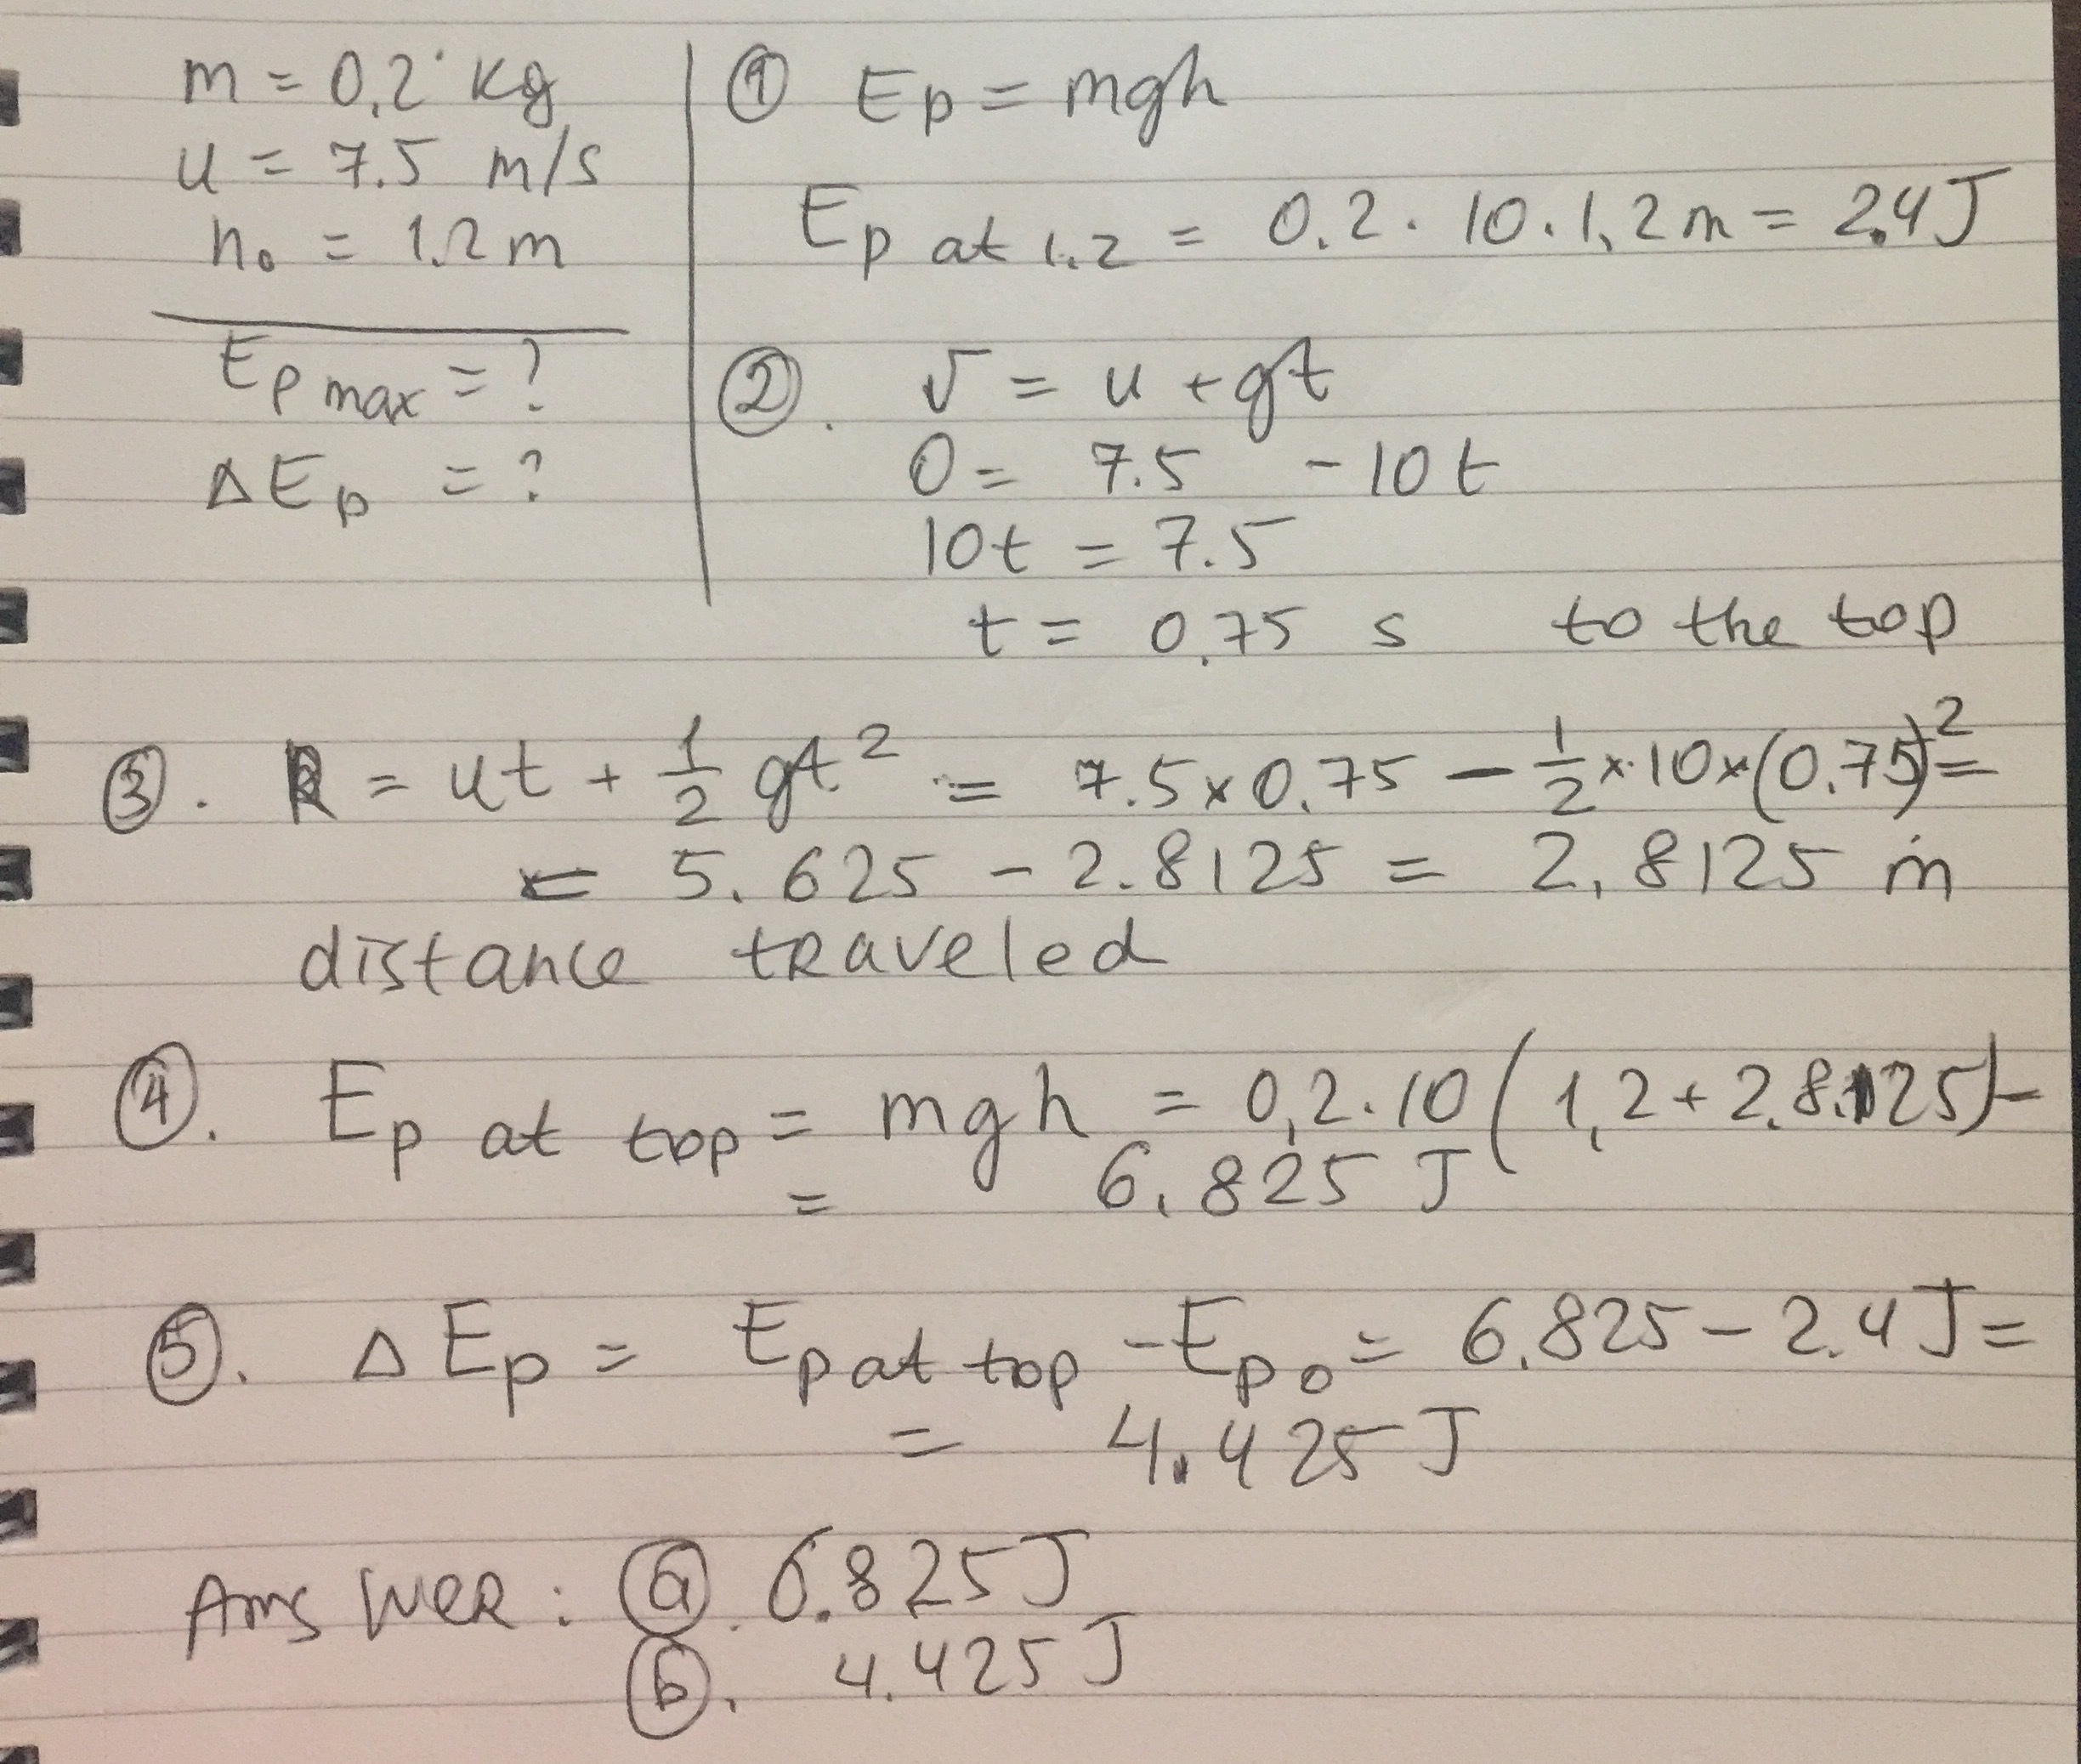 m = 0.2 kg
u = 7.5 m/s
h₀ = 1.2 m
Ep max = ?
ΔEp = ?
① Ep = mgh
Ep at 1.2 = 0.2 · 10 · 1.2 m = 2.4 J
②. v = u + gt
0 = 7.5 - 10t
10t = 7.5
t = 0.75 s to the top
③. h = ut + 1/2 gt² = 7.5 × 0.75 - 1/2 × 10 × (0.75)² =
= 5.625 - 2.8125 = 2.8125 m
distance traveled
④. Ep at top = mgh = 0.2 · 10 (1.2 + 2.8125) -
= 6.825 J
⑤. ΔEp = Ep at top - Ep₀ = 6.825 - 2.4 J =
= 4.425 J
Answer: ⓐ. 6.825 J
ⓑ. 4.425 J